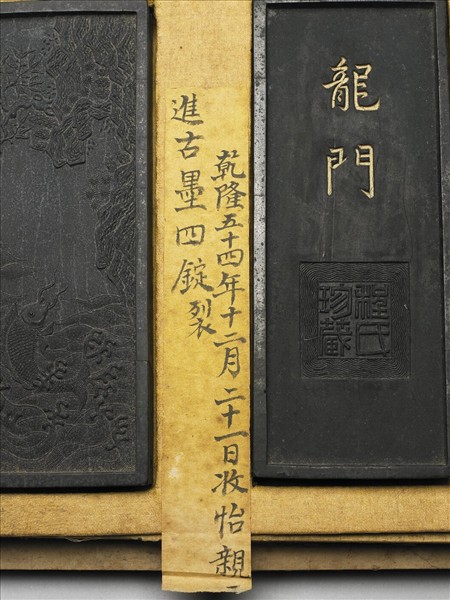 龍門
程氏
珍藏
乾隆五十四年十二月二十一日收怡親
進古墨四錠裂